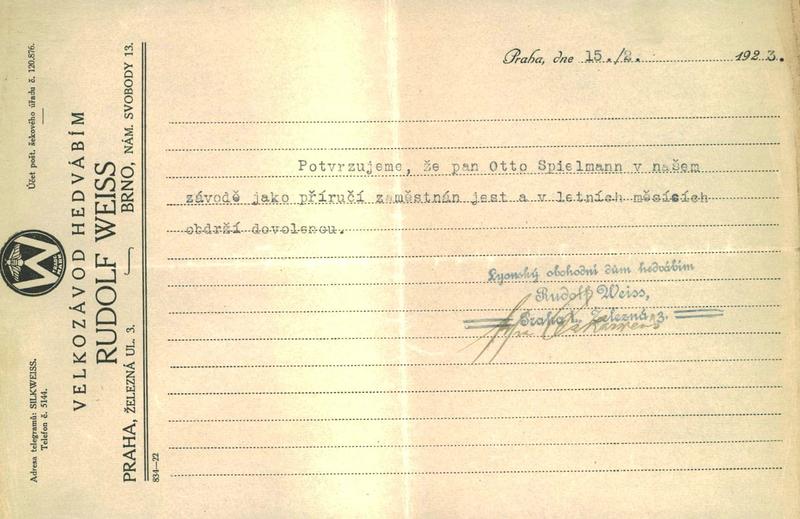 Účet pošt. šekového úřadu č. 120.876.
Adresa telegramů: SILKWEISS.
Telefon č. 5144.
W
VELKOZÁVOD HEDVÁBÍM
RUDOLF WEISS
PRAHA, ŽELEZNÁ UL. 3.
BRNO, NÁM. SVOBODY 13.
834—22
Praha, dne 15./2. 1923.
Potvrzujeme, že pan Otto Spielmann v našem
závodě jako příručí zaměstnán jest a v letních měsících
obdrží dovolenou.
Lyonský obchodní dům hedvábím
Rudolf Weiss,
Praha I., Železná 3.